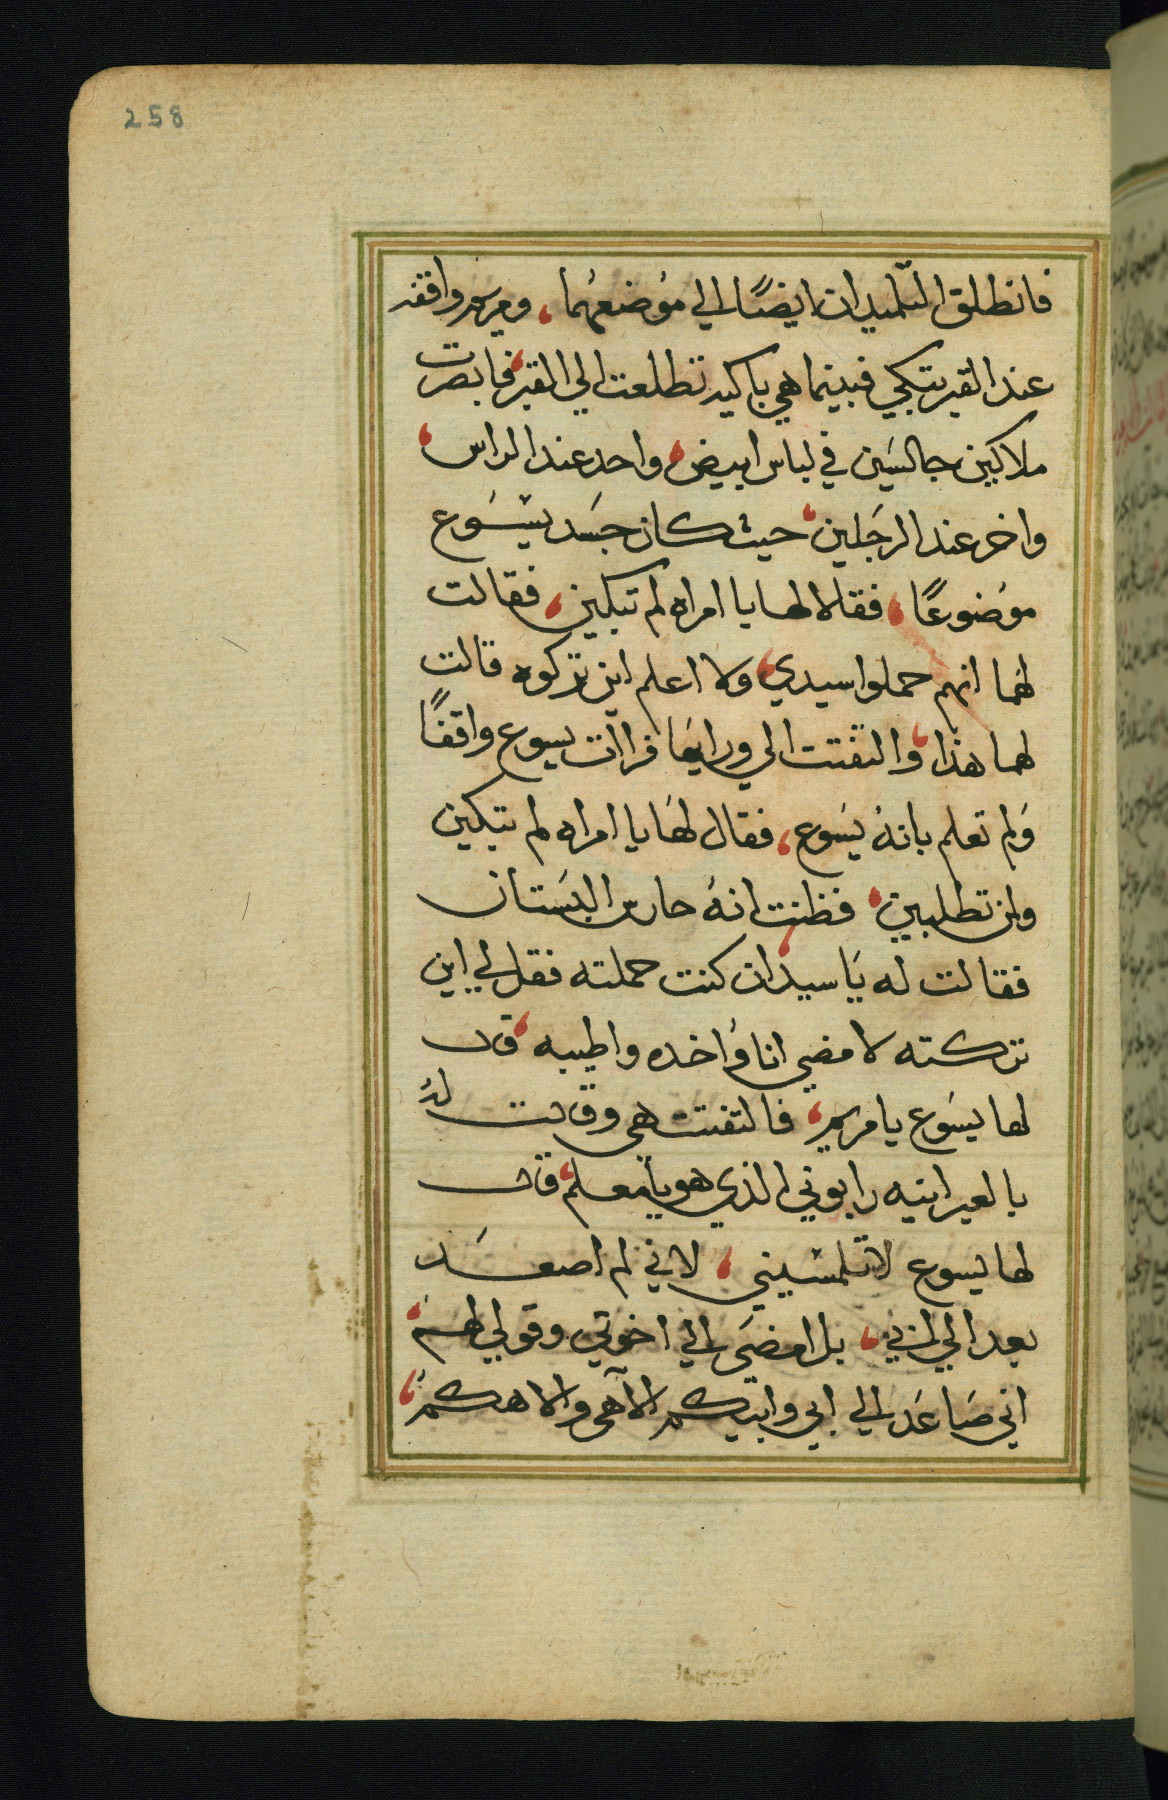 258
فانطلق التلميدان ايضًا الي موُضعهُما، ومريم واقفه
عند القبر تبكي فبينما هي باكيه تطلعت الي القبر، فابصرت
ملاكين جالسَين في لباس ابيض، واحد عند الراس،
واخر عند الرجَلين، حيث كان جسَد يسَوع
موُضوعًا، فقالا لها يا امراه لم تبكين، فقالت
لهما انهم حملوا سيدي، ولا اعلم اين تركوه قالت
لهما هذا، والتفتت الي ورايهَا فراات يسوع واقفًا
وَلم تعلم بانهُ يسَوع، فقال لهَا يا امراه لم تبكين
ولمن تطلبين، فظنت انهُ حارس البسَتان
فقالت له يَا سيد، ان كنت حملته فقل لي اين
تركته لامضي انا وُاخده واطيبه، قال
لها يسَوع يا مريم، فالتفتت هي وقالت لهُ
بالعبرانيه رابوني الذي هو يا معلم، قال
لها يسوع لا تلمسَيني، لاني لم اصعَد
بعد الي ابي، بل امضَي الي اخوتي وقولي لهم،
اني صَاعَد الي ابي وابيكم الاهي والاهكم،